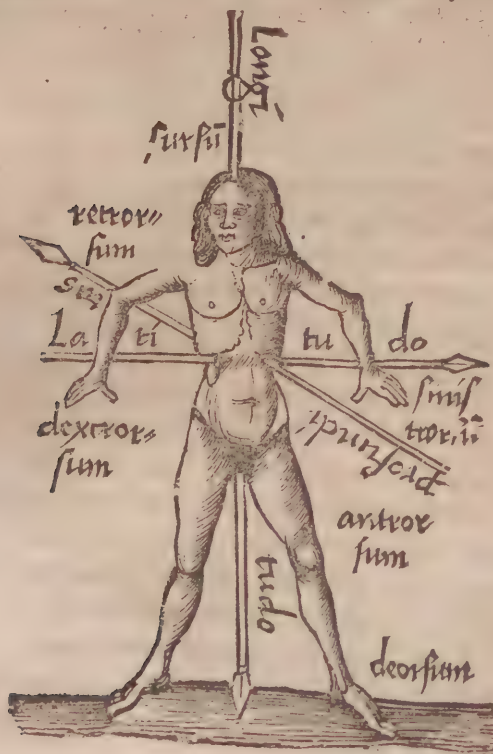 Longi
sursū
retror=
sum
tas
La ti tu do
sinis
trorsū
dextror=
sum
profundi
antror
sum
tudo
deorsum